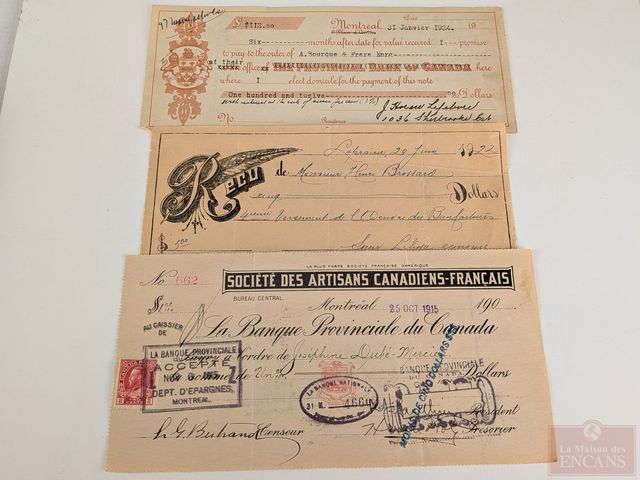 Due
$ $112.00 Montreal 31 Janvier 1924. 19
Six months after date for value received I promise
to pay to the order of A. Bourque & Frere Enrg.
at their
office THE PROVINCIAL BANK OF CANADA here
where I elect domicile for the payment of this note
One hundred and twelve Dollars
No. J. Horace Lefebvre
1036 Sherbrooke Est
Reçu
Laprairie, 20 Juin 1922
de Monsieur Henri Brossard
cinq Dollars
Versement de l'Oeuvre des Bienfaiteurs
$ 5.00
LA PLUS FORTE SOCIÉTÉ FRANÇAISE D'AMÉRIQUE
No 662 SOCIÉTÉ DES ARTISANS CANADIENS-FRANÇAIS
BUREAU CENTRAL
Montréal 25 OCT 1915 190
AU CAISSIER DE
La Banque Provinciale du Canada
Payez à l'ordre de Joséphine Dubé-Mercier
la somme de Un Dollars
LA BANQUE PROVINCIALE
ACCEPTÉ
DEPT. D'EPARGNES,
MONTREAL
LA BANQUE NATIONALE
BANQUE PROVINCIALE
MOINS DE CINQ DOLLARS $5
Président
L. G. Bertrand Censeur
Trésorier
La Maison des
ENCANS